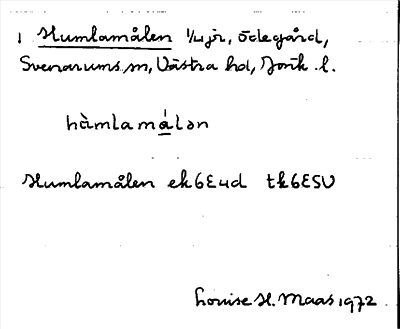 1 Humlamålen 1/4 jr, ödegård,
Svenarums sn, Västra hd, Jönk. l.
hàmlamálən
Humlamålen ek6E4d tk6E5U
Louise H. Maas 1972